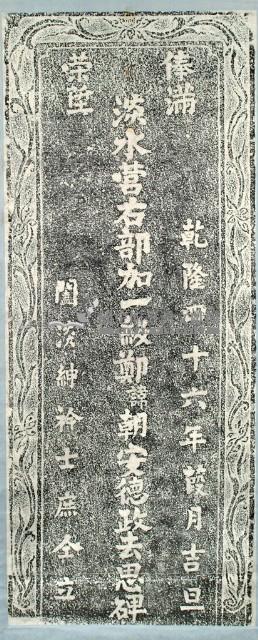 俸滿
榮陞
乾隆四十六年葭月吉旦
淡水營右部加一級鄭諱朝安德政去思碑
闔淡紳衿士庶仝立